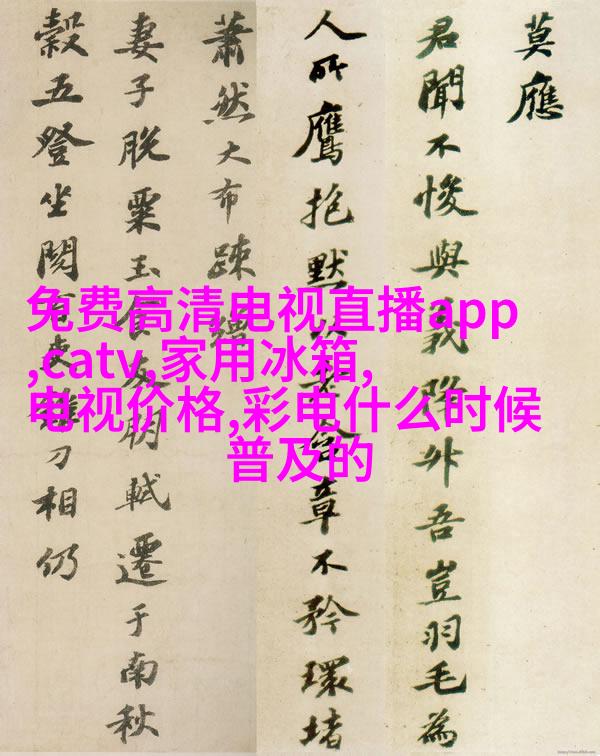 免费高清电视直播app
,catv,家用冰箱,
电视价格,彩电什么时候
普及的
莫應
君聞不悛與義降外吾豈羽毛為
人所鷹抱默含章不矜環堵
蕭然大布疎
妻子脱粟玉食朋軾遷于南秋
穀五登坐閱刀相仍